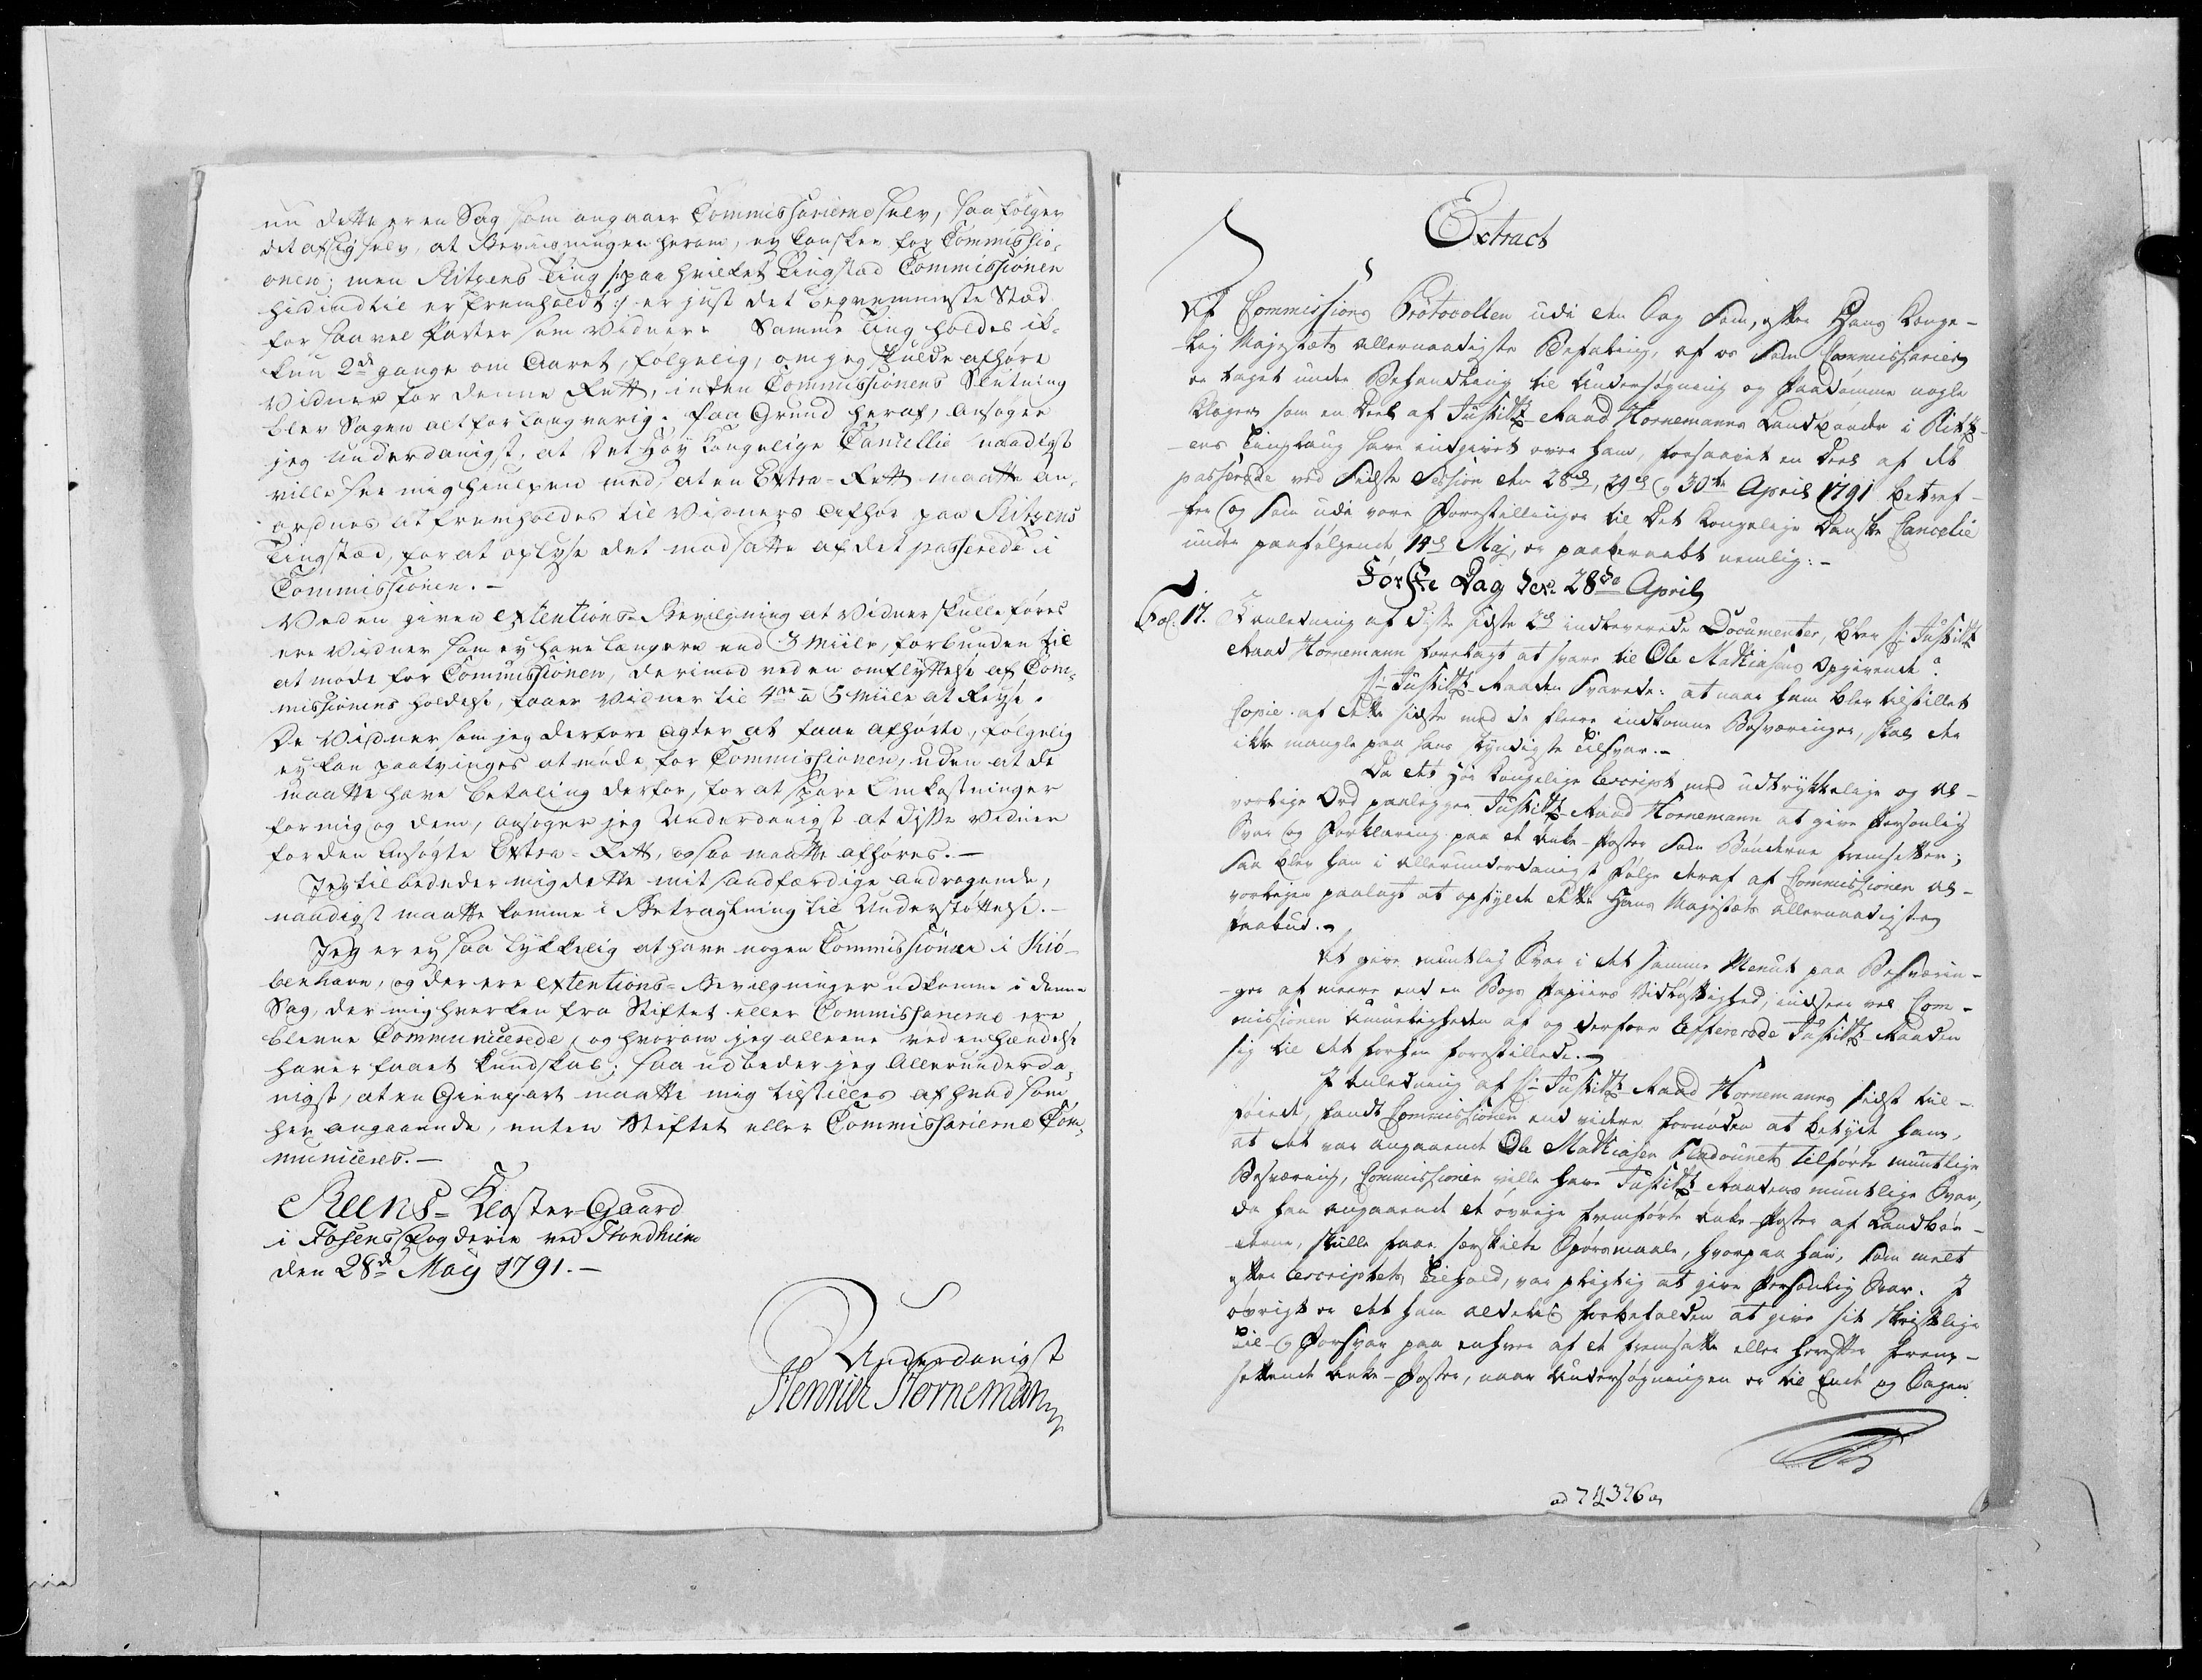 nu dette er en Sag som angaaer Commissarierne selv, saa følger
det af sig selv, at Beviisningen herom, ey kan skee for Commissio¬
onen; men Ritzens Ting /: paa hvilket Tingstæd Commissionen
hidindtil er fremholdt :/ er just det beqvemmeste Stæd
for saavel Parter som Vidner. Samme Ting holdes ik¬
kun 2de gange om Aaret, følgelig, om jeg skulde afhøre
Vidner for denne Rett, inden Commissionens Slutning
blev Sagen alt for langvarig. Paa Grund heraf, ansøger
jeg Underdanigst, at Det Høy Kongelige Cancellie naadigst
ville see mig hiulpen med, at en Extra-Rett maatte an¬
ordnes at fremholdes til Vidners Afhør paa Ritzens
Tingstæd, for at oplyse det modsatte af det passerede i
Commissionen.-
Ved en given extentions-Bevilgning at Vidner skulle føres
ere Vidner som ey have længere end 3 Miile, forbunden til
at møde for Commissionen, derimod ved en omflyttelse af Com¬
missionens holdelse, faaer Vidner til 4re a 5 Miile at Reyse.
De Vidner som jeg derfore agter at faae afhørte, følgelig
ey kan paatvinges at møde for Commissionen, uden at de
maatte have betaling derfor, for at spare Omkostninger
for mig og dem, ansøger jeg Underdanigst at disse Vidner
for den Ansøgte Extra-Rett, ogsaa maatte afhøres.-
Jeg tilbededer mig dette mit sandfærdige andragende,
naadigst maatte komme i Betragtning til Understøttelse.-
Jeg er ey saa lykkelig at have nogen Commissionær i Kiø¬
benhavn, og der ere extentions-Bevilgninger udkomne i denne
Sag, der mig hverken fra Stiftet eller Commissarierne ere
blevne Communicerede, og hvorom jeg alleene ved en hændelse
haver faaet kundskab; saa udbeder jeg Allerunderda¬
nigst, at en Gienpart maatte mig tilstilles af hvad som
her angaaende, enten Stiftet eller Commissarierne Com¬
municeres.-
Reens-Kloster-Gaard
i Fosens Fogderie ved Trondhiem
den 28de Maij 1791.-
Underdanigst
Henrich Hornemann
Extract
Af Commissions Protocollen udi den Sag som, efter Hans Konge-
lig Majestæts allernaadigste Befaling, af os som Commissarier
er taget under Behandling til Undersøgning og Paadømme nogle
Klager som en Deel af Justitz-Raad Hornemanns Landbønder i Ritz-
ens Tinglaug have indgivet over ham, forsaavit en Deel af det
passerede ved sidste Session den 28de, 29de og 30te April 1791 betref-
fer og som udi vore Forestillinger til Det Kongelige Danske Cancelie
under paafølgende 14de Maj, er paaberaabt nemlig:-
Første Dag den 28de April
Fol. 17. I Anledning af disse sidste 2de indleverede Documenter, blev Hr. Justitz
Raad Hornemann forelagt at svare til Ole Mathiasens Opgivende?
Hr. Justitz-Raaden svarede: at naar ham blev tilstillet
Copie af dette sidste med de fleere indkomne Besværinger, skal det
ikke mangle paa hans skyndigste Tilsvar.-
Da det høi Kongelige Rescript med udtrykkelige og al-
vorlige Ord paalegger Justitz-Raad Hornemann at give personlig
Svar og Forklaring paa de Anke-Poster som Bønderne fremsetter;
saa blev han i allerunderdanigst Følge deraf af Commissionen al-
vorligen paalagt at opfylde dette Hans Majestæts allernaadigste
Paabud.-
At give muntlig Svar i det samme Minut paa Besværin-
ger af meere end en Bogs Papiirs Vidløftighed, indseer vel Com-
missionen Umueligheden af og derfore refererede Justitz-Raaden
sig til det forhen forestillede.-
I Anledning af Hr. Justitz-Raad Hornemanns sidst til-
føiede, fandt Commissionen end videre fornøden at betyde ham,
at det var angaaende Ole Mathiasen Fladournets tilførte muntlige
Besværing, Commissionen ville have Justitz-Raadens muntlige Svar,
da han angaaende de øvrige fremførte Anke-Poster af Landbøn-
derne, skulle faae særskilte Spørsmaale, hvorpaa han, som melt
efter Rescriptets Tilhold, var pligtig at give personlig Svar. I
øvrigt er det ham aldeles forbeholden at give sit skriftlige
Til- og Forsvar paa enhver af de fremsatte eller herefter frem-
settende Anke-Poster, naar Undersøgningen er til Ende og Sagen